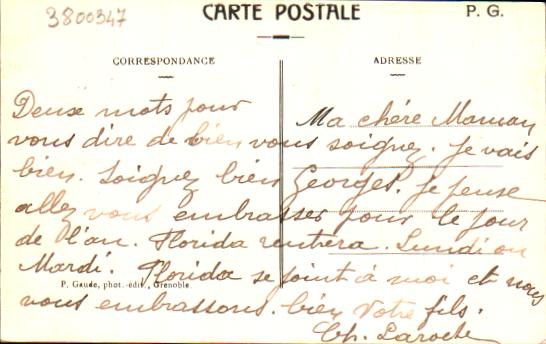 3800347
CARTE POSTALE
P. G.
CORRESPONDANCE
ADRESSE
Ma chère Maman
Deux mots pour
vous dire de bien vous soigner. je vais
bien. Soignez bien Georges. je pense
allez vous embrasser pour le jour
de l'an. Florida rentrera. Lundi ou
Mardi. Florida se joint à moi et nous
P. Gaude, phot.-édit., Grenoble.
vous embrassons. bien Votre fils.
Ch. Laroche